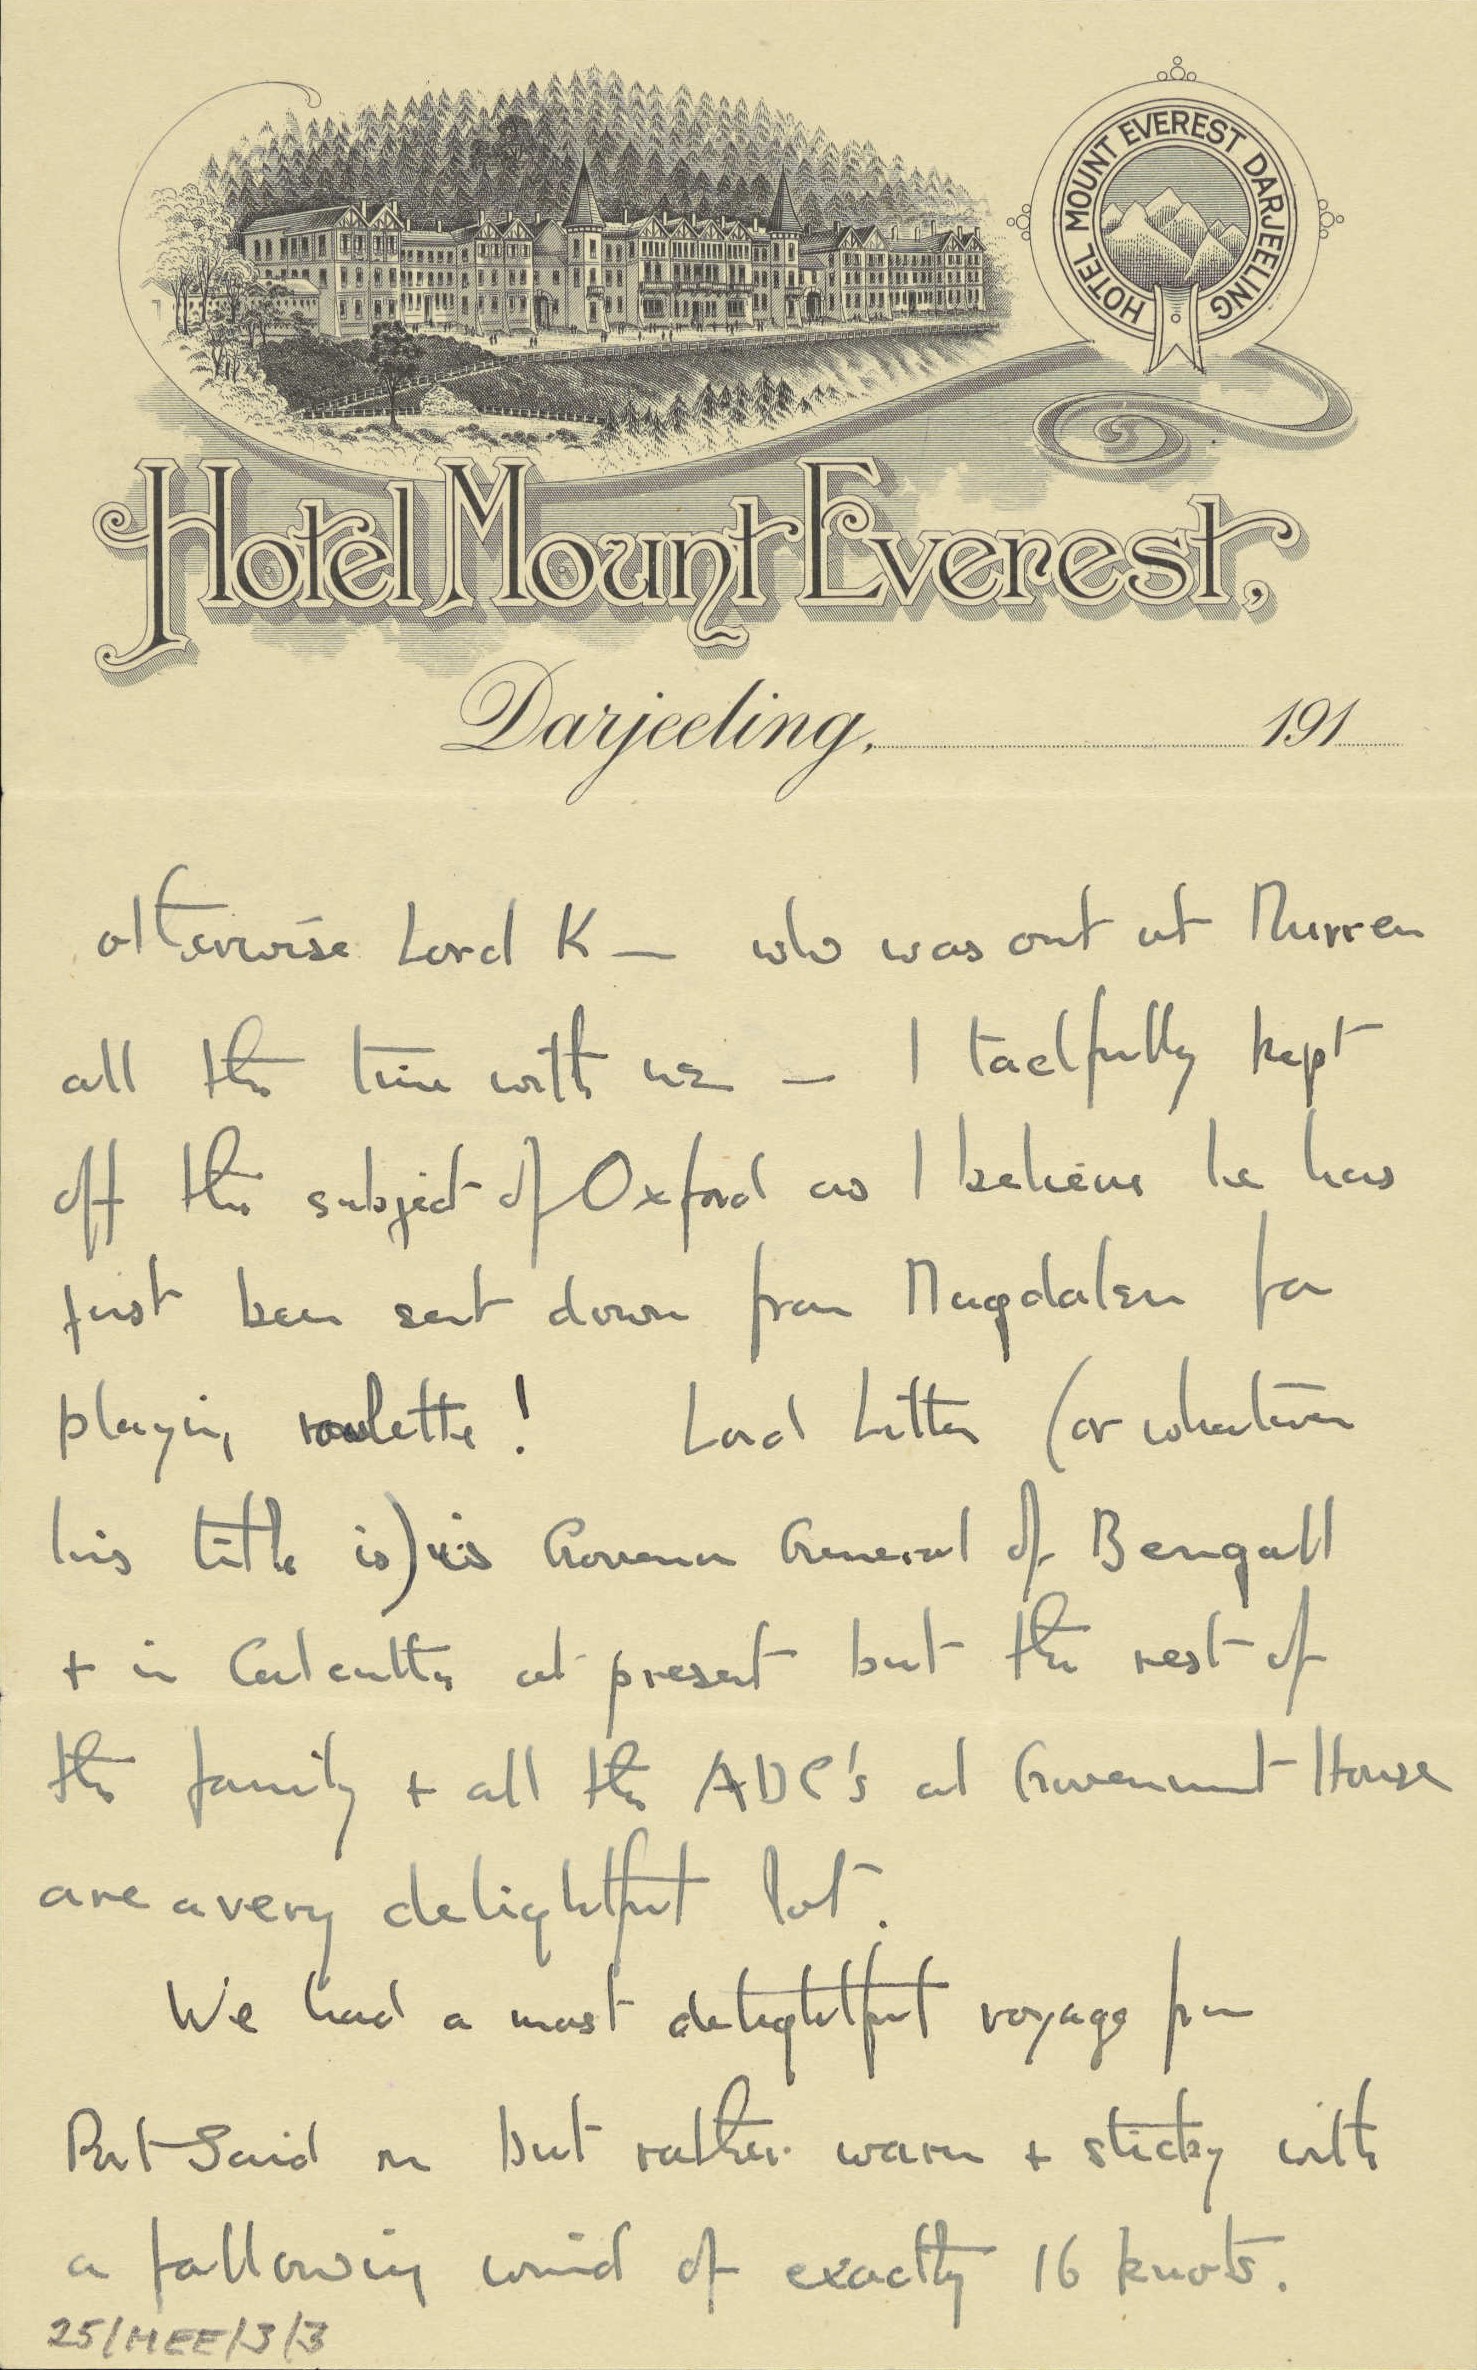 HOTEL MOUNT EVEREST DARJEELING
Hotel Mount Everest,
Darjeeling, 191
otherwise Lord K — who was out at Murren
all the time with us — I tactfully kept
off the subject of Oxford as I believe he has
just been sent down from Magdalen for
playing roulette! Lord Litton (or whatever
his title is) is Governor General of Bengall
+ in Calcutta at present but the rest of
the family + all the ADC's at Government House
are a very delightful lot.
We had a most delightful voyage from
Port Said on but rather warm + sticky with
a following wind of exactly 16 knots.
25/MEE/3/3